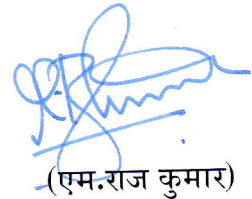 (एम.राज कुमार)